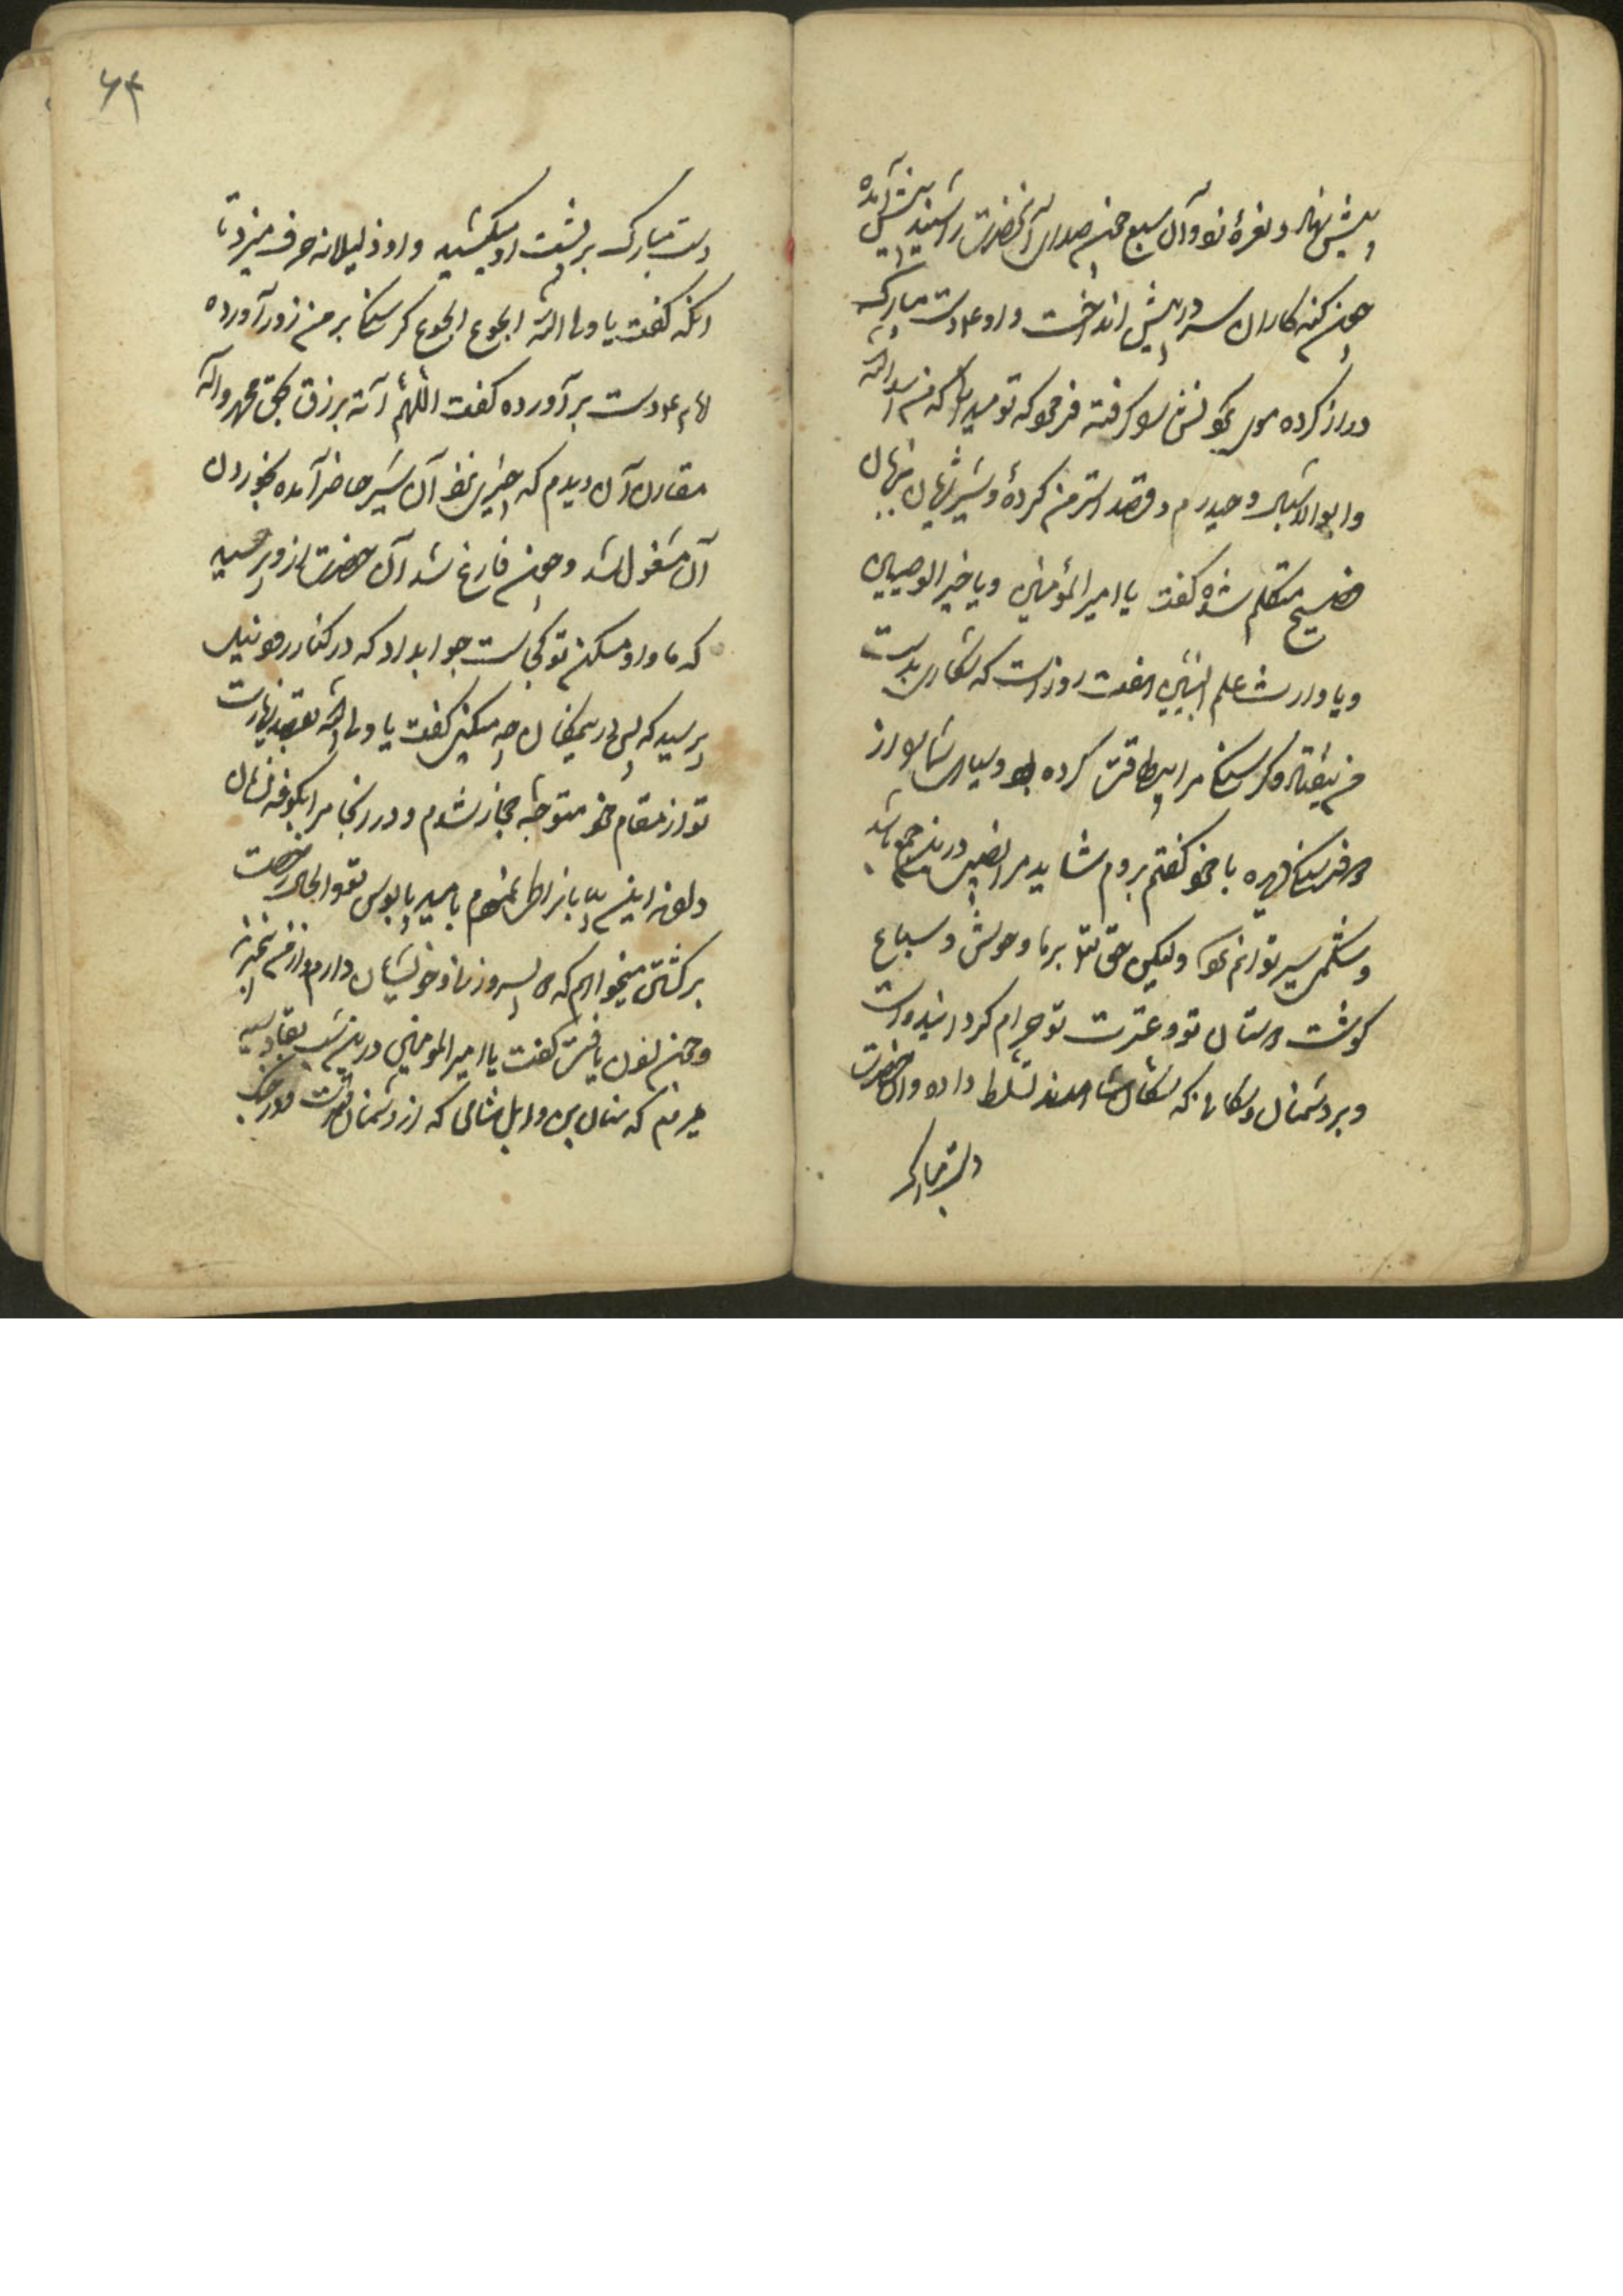 پیش نهاد و نعرهٔ زد و آن سبع چون صدای آنحضرت را شنید پیش آمده
چون گنه کاران سر در پیش انداخت و او ع م دست مبارک
دراز کرده موی گرفته فرمود که تو میدانی که من اسد الله
و ابو الاشبال و حیدرم و قصد استر من کردهٔ و شیر بزبان
فصیح متکلم شده گفت یا امیر المؤمنین و یا خیر الوصیین
و یا وارث علم النبیین هفت روز است که شکاری بدست
من نیفتاده و گرسنگی مرا بیطاقت کرده بود و سیاهی شما را از
دو فرسنگ دیده با خود گفتم بروم شاید مرا نصیبی در میان جمع باشد
و شکمی سیر توانم نمود ولیکن حق تعالی بر ما وحوش و سباع
گوشت دوستان تو و عترت تو حرام گردانیده است
و بر دشمنان و که دشمنان شما تسلط داده و آن حضرت
دست مبارک
۶۳
دست مبارک بر پشت او میکشید و او ذلیلانه حرف میزد تا
انکه گفت یا ولی الله الجوع الجوع گرسنگی بر من زور آورده
امام ع م دست بر آورده گفت اللهم آته برزق بحق محمد وآله
مقارن آن دیدم که چیزی نزد آن شیر حاضر آمده بخوردن
آن مشغول شد و چون فارغ شد آن حضرت از و پرسید
که ماوا و مسکن تو کجاست جواب داد که در کنار رود نیل
پرسید که پس در یمکان چه میکنی گفت یا ولی الله بقصد زیارت
تو از مقام خود متوجه حجاز شدم و در آنجا مرا بکوفه نشان
دادند این بیابانرا طی نمودم بامید پابوس تو و الحال رخصت
برگشتن میخواهم که دو پسر و زن و خویشان دارم و از من خبر ندارند
و چون اذن یافت گفت یا امیر المومنین درین شب بقادسیه
میروم که سنان بن وابل شامی که از دشمنان تست و در جنک